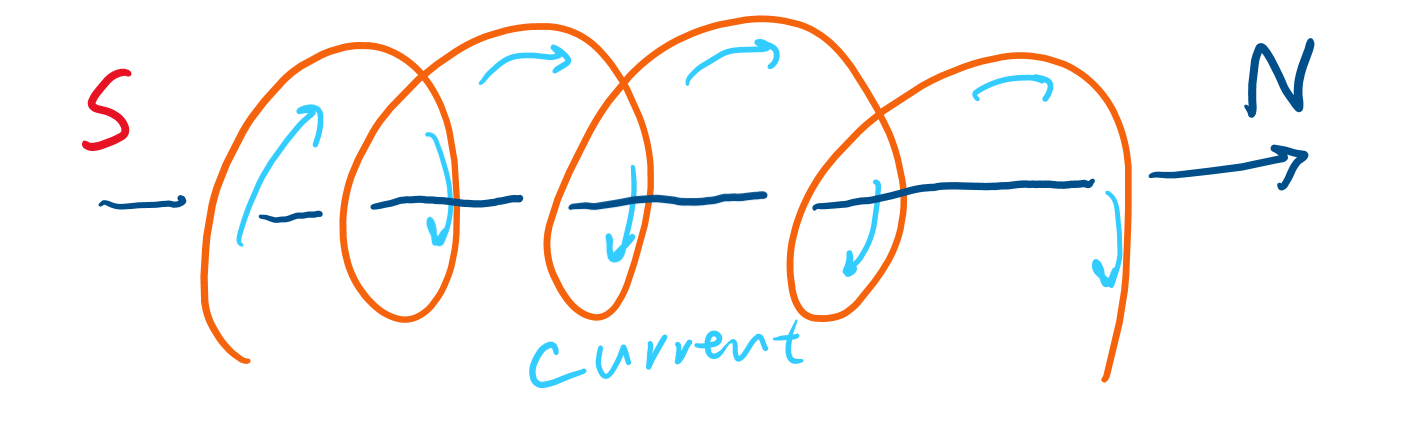 S
N
Current